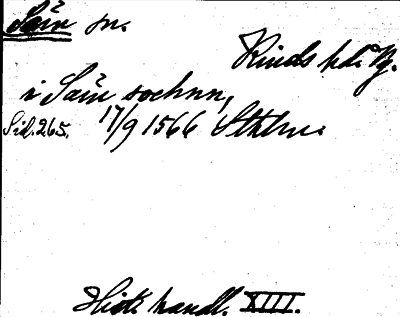 Säm sn.
Rinds hd. Vg.
i Säm sochnn,
Sid. 265. 17/9 1566 Sthlm.
Hist. handl. XIII.